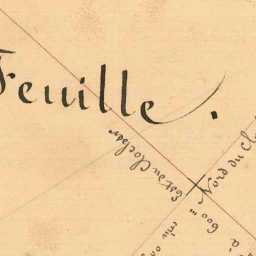 Feuille.
Est du Clocher
Nord du Clo
600 m
à